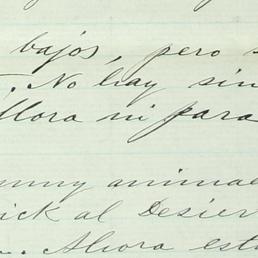 bajos, pero s
. No hay sin
Mora ni para
unny animae
ick al Desier
. Ahora esta